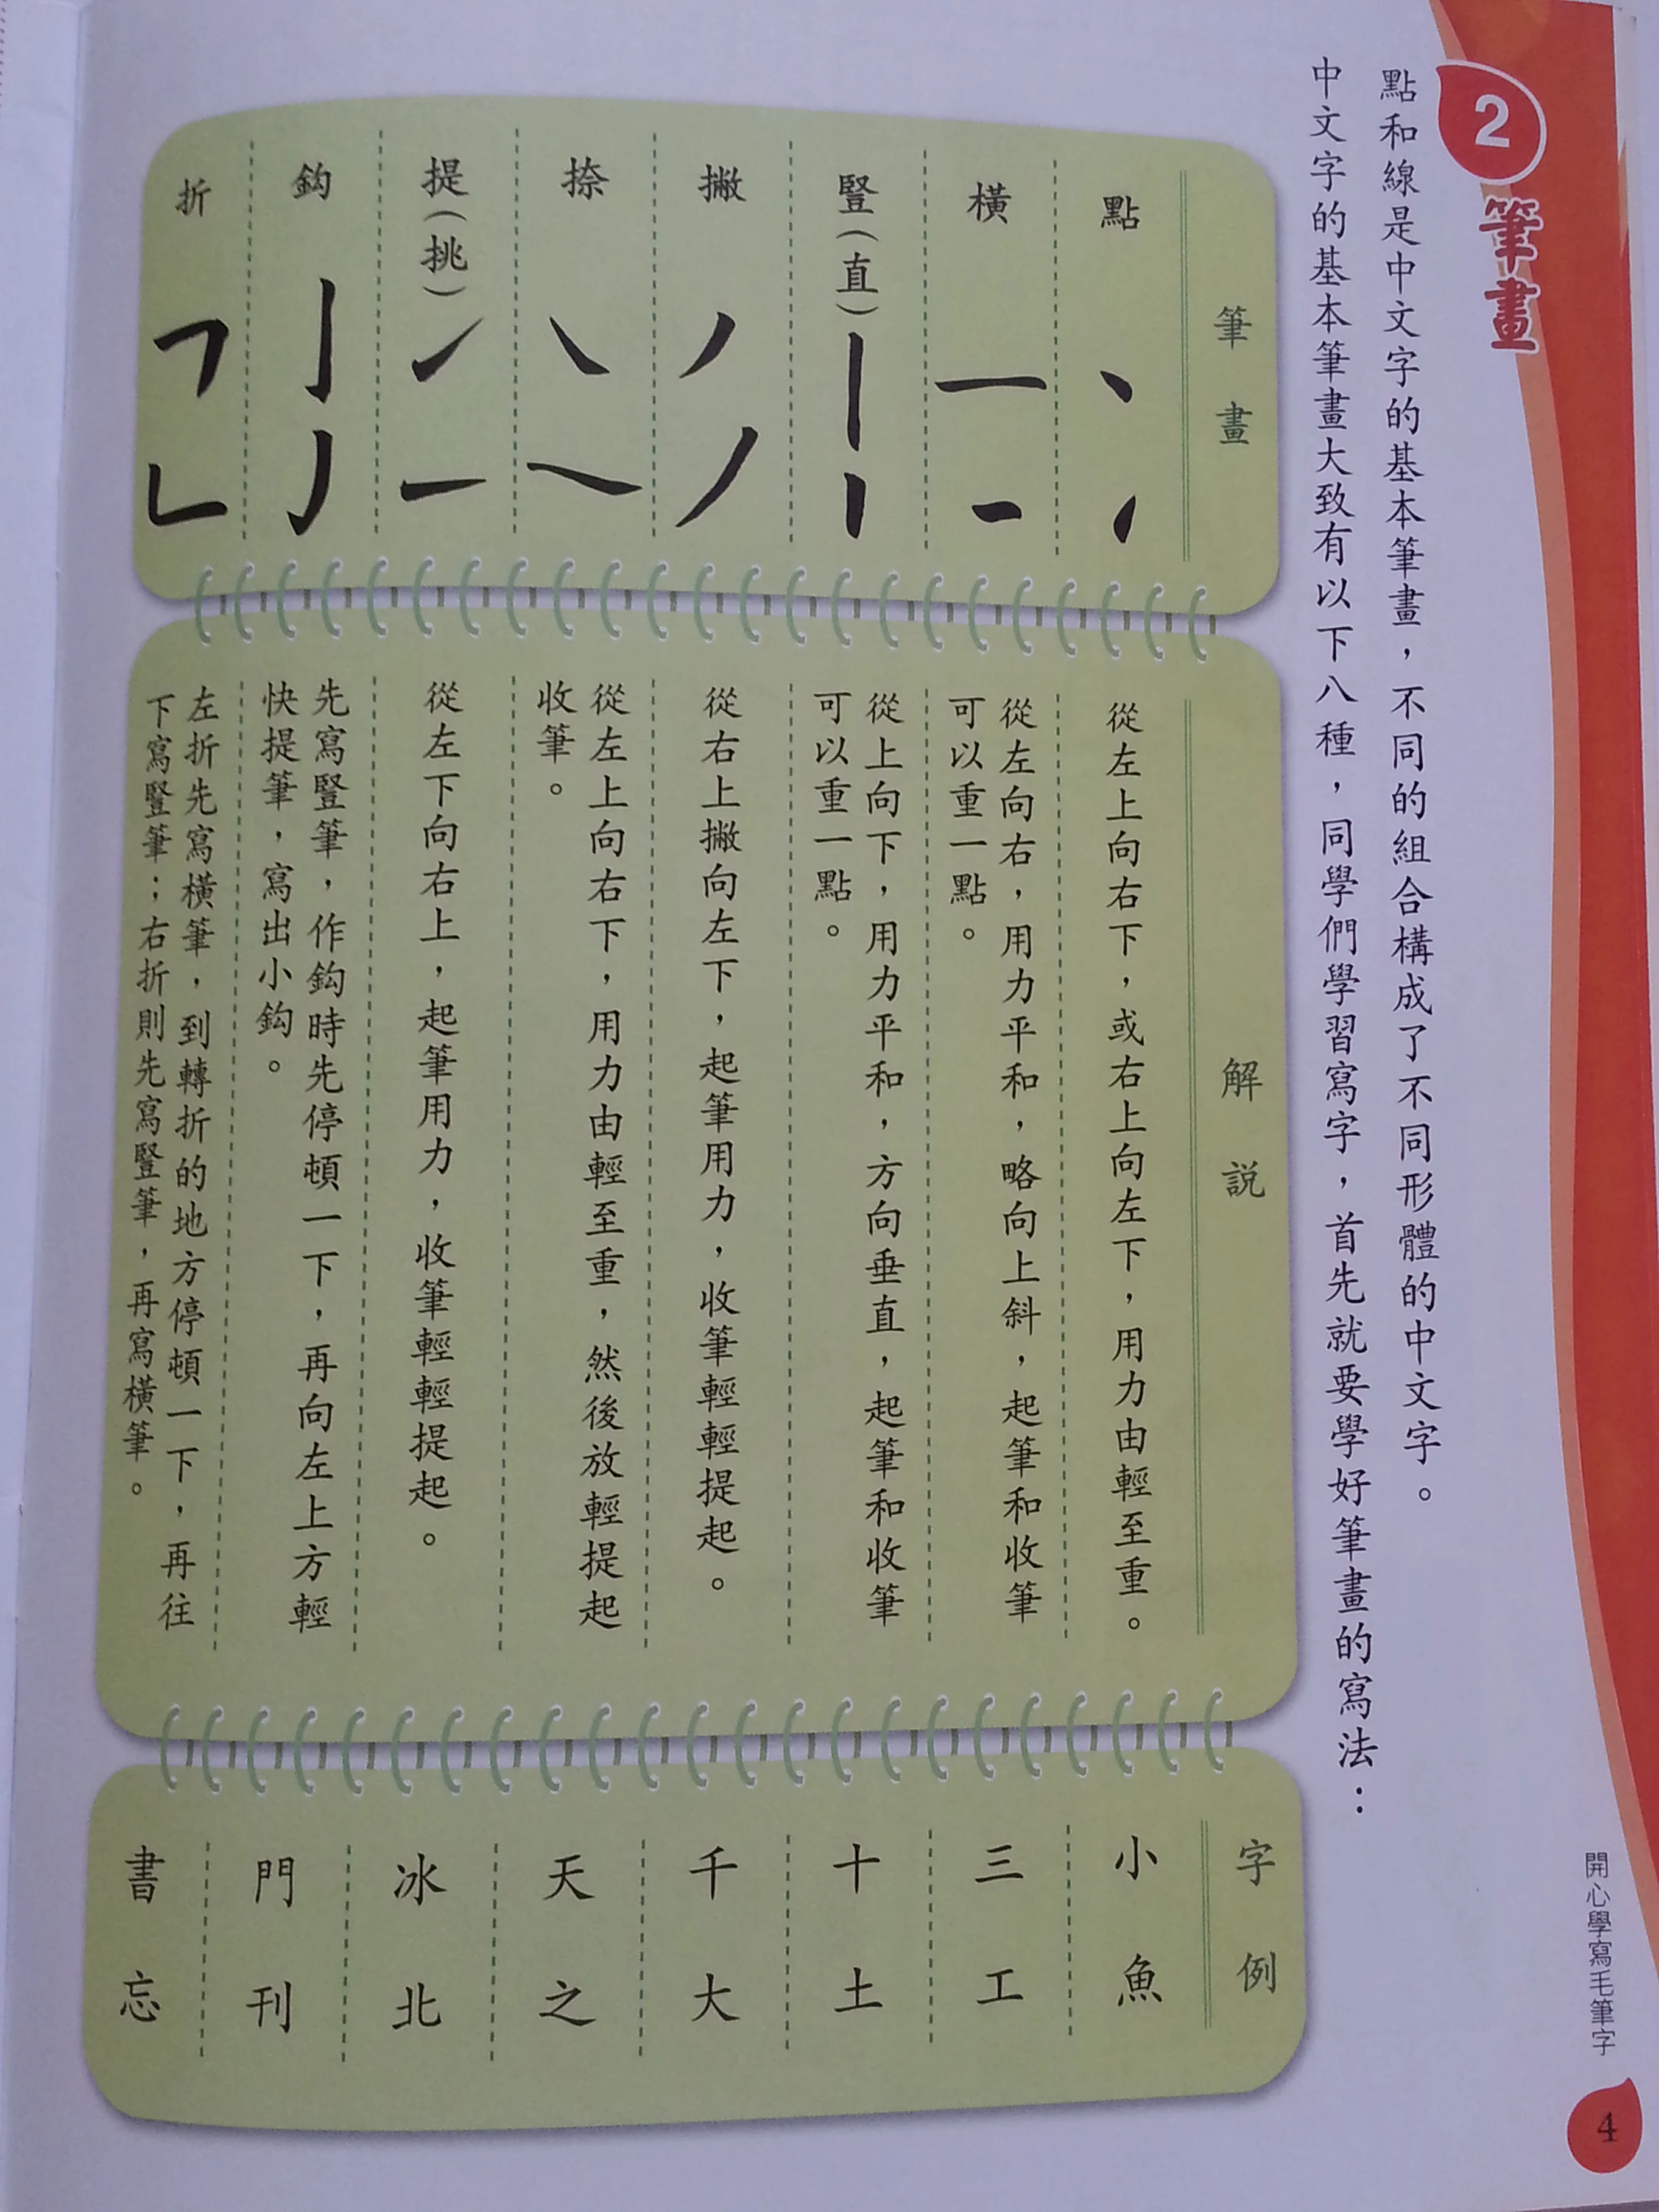 2
筆畫
點和線是中文字的基本筆畫，不同的組合構成了不同形體的中文字。
中文字的基本筆畫大致有以下八種，同學們學習寫字，首先就要學好筆畫的寫法：
筆畫
解説
字例
點
從左上向右下，或右上向左下，用力由輕至重。
小魚
橫
從左向右，用力平和，略向上斜，起筆和收筆
可以重一點。
三工
豎(直)
從上向下，用力平和，方向垂直，起筆和收筆
可以重一點。
十土
撇
從右上撇向左下，起筆用力，收筆輕輕提起。
千大
捺
從左上向右下，用力由輕至重，然後放輕提起
收筆。
天之
提(挑)
從左下向右上，起筆用力，收筆輕輕提起。
冰北
鈎
先寫豎筆，作鈎時先停頓一下，再向左上方輕
快提筆，寫出小鈎。
門刊
折
左折先寫橫筆，到轉折的地方停頓一下，再往
下寫豎筆；右折則先寫豎筆，再寫橫筆。
書忘
開心學寫毛筆字
4